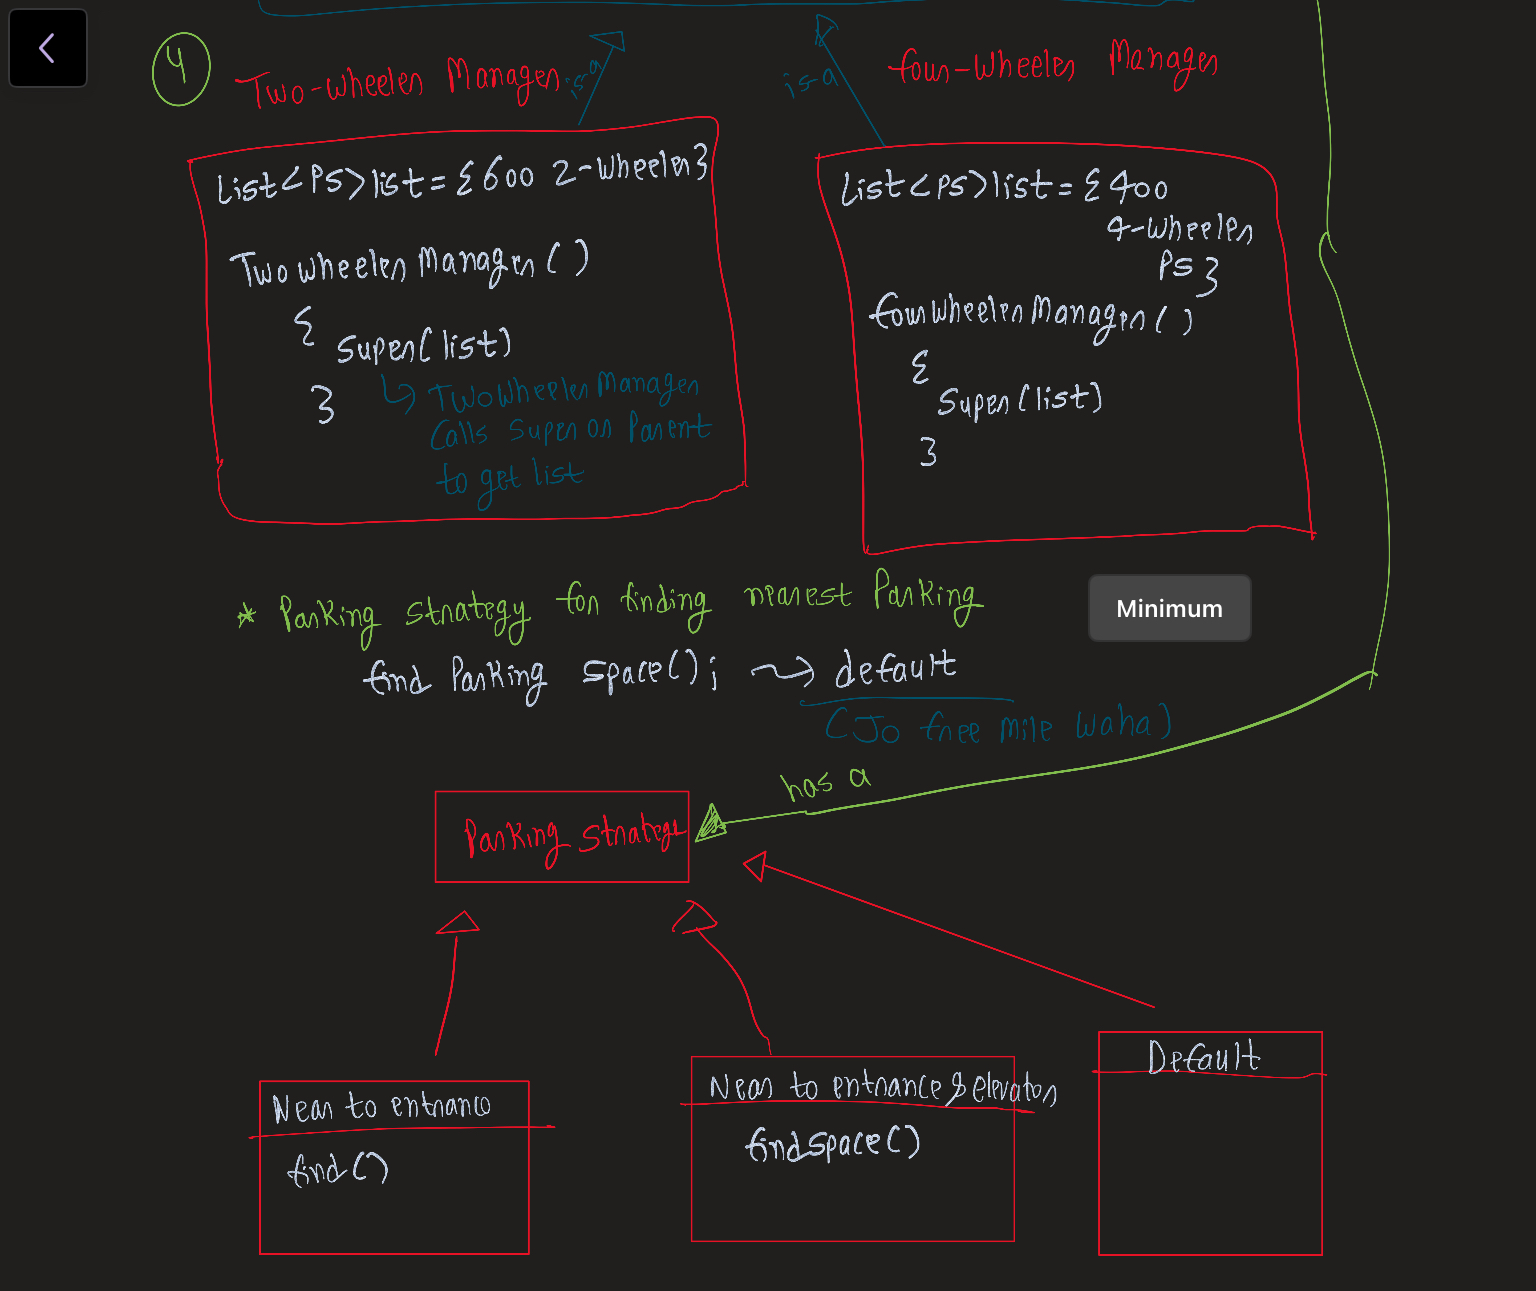 4
Two-wheeler Manager
is-a
is-a
four-wheeler Manager
List<PS>list = {600 2-wheeler}
Two wheeler Manager()
{
Super(list)
}
TwoWheeler Manager
Calls Super on Parent
to get list
List<PS>list = {400
4-wheeler
PS}
four wheeler Manager()
{
Super(list)
}
* Parking strategy for finding nearest Parking
Minimum
find Parking space(); default
(Jo free mile waha)
has a
Parking strategy
Near to entrance
find()
Near to entrance & elevator
findspace()
Default